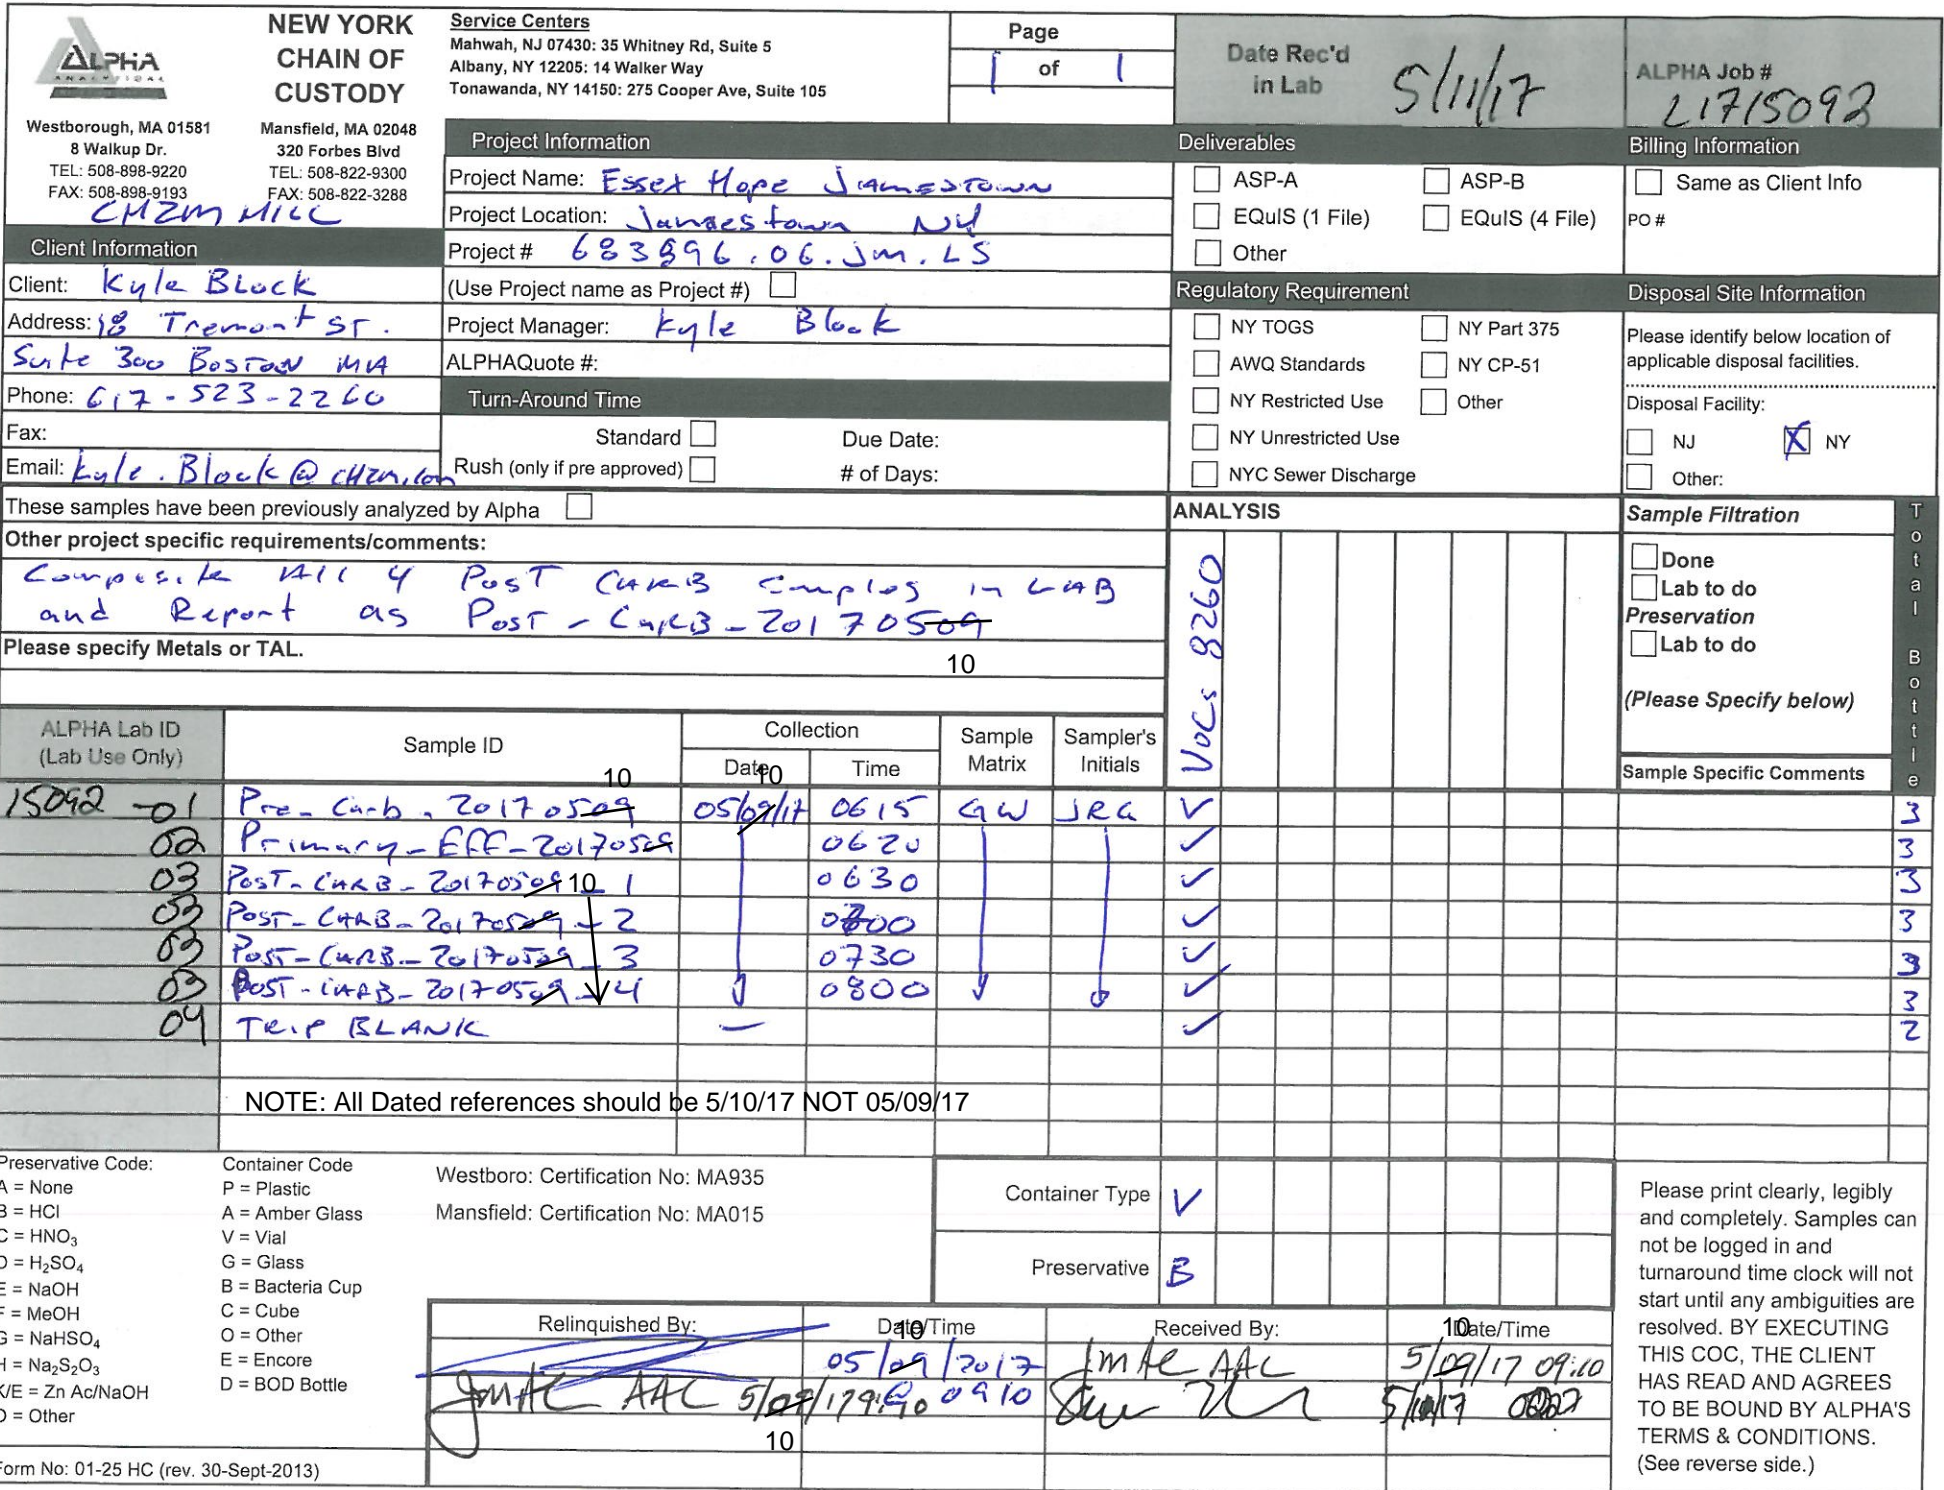 ALPHA
ANALYTICAL
NEW YORK
CHAIN OF
CUSTODY
Westborough, MA 01581
8 Walkup Dr.
TEL: 508-898-9220
FAX: 508-898-9193
Mansfield, MA 02048
320 Forbes Blvd
TEL: 508-822-9300
FAX: 508-822-3288
CH2M HILL
Service Centers
Mahwah, NJ 07430: 35 Whitney Rd, Suite 5
Albany, NY 12205: 14 Walker Way
Tonawanda, NY 14150: 275 Cooper Ave, Suite 105
Page
1 of 1
Date Rec'd
in Lab
5/11/17
ALPHA Job #
L1715092
Client Information
Client: Kyle Block
Address: 18 Tremont ST.
Suite 300 BOSTON MA
Phone: 617-523-2260
Fax:
Email: Kyle.Block@CH2M.com
Project Information
Project Name: Essex Hope Jamestown
Project Location: Jamestown NY
Project # 683896.06.jm.LS
(Use Project name as Project #)
Project Manager: Kyle Block
ALPHAQuote #:
Turn-Around Time
Standard Due Date:
Rush (only if pre approved) # of Days:
Deliverables
ASP-A ASP-B
EQuIS (1 File) EQuIS (4 File)
Other
Regulatory Requirement
NY TOGS NY Part 375
AWQ Standards NY CP-51
NY Restricted Use Other
NY Unrestricted Use
NYC Sewer Discharge
Billing Information
Same as Client Info
PO #
Disposal Site Information
Please identify below location of
applicable disposal facilities.
Disposal Facility:
NJ X NY
Other:
These samples have been previously analyzed by Alpha
Other project specific requirements/comments:
Composite All 4 POST CARB samples in LAB
and Report as POST-CARB-20170509
10
Please specify Metals or TAL.
ANALYSIS
VOCs 8260
Sample Filtration
Done
Lab to do
Preservation
Lab to do
(Please Specify below)
Total Bottle
ALPHA Lab ID
(Lab Use Only)
Sample ID
Collection
Date Time
Sample
Matrix
Sampler's
Initials
Sample Specific Comments
10 10
15092-01 Pre-Carb-20170509 05/09/17 0615 GW JRG ✓ 3
02 Primary-Eff-20170509 0620 ✓ 3
03 POST-CARB-20170509 10 - 1 0630 ✓ 3
03 POST-CARB-20170509 - 2 ✓ 3
03 POST-CARB-20170509 - 3 0730 ✓ 3
03 POST-CARB-20170509 - 4 0800 ✓ 3
04 TRIP BLANK — ✓ 2
NOTE: All Dated references should be 5/10/17 NOT 05/09/17
Preservative Code:
A = None
B = HCl
C = HNO3
D = H2SO4
E = NaOH
F = MeOH
G = NaHSO4
H = Na2S2O3
K/E = Zn Ac/NaOH
O = Other
Container Code
P = Plastic
A = Amber Glass
V = Vial
G = Glass
B = Bacteria Cup
C = Cube
O = Other
E = Encore
D = BOD Bottle
Westboro: Certification No: MA935
Mansfield: Certification No: MA015
Container Type V
Preservative B
Relinquished By: Date/Time Received By: Date/Time
10 10
05/09/2017 AAC 5/09/17 09:10
AAC 5/09/17 @ 0910
10
Please print clearly, legibly
and completely. Samples can
not be logged in and
turnaround time clock will not
start until any ambiguities are
resolved. BY EXECUTING
THIS COC, THE CLIENT
HAS READ AND AGREES
TO BE BOUND BY ALPHA'S
TERMS & CONDITIONS.
(See reverse side.)
Form No: 01-25 HC (rev. 30-Sept-2013)